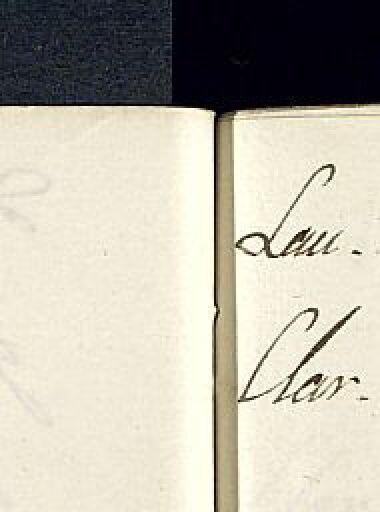 Lau.
Clar.